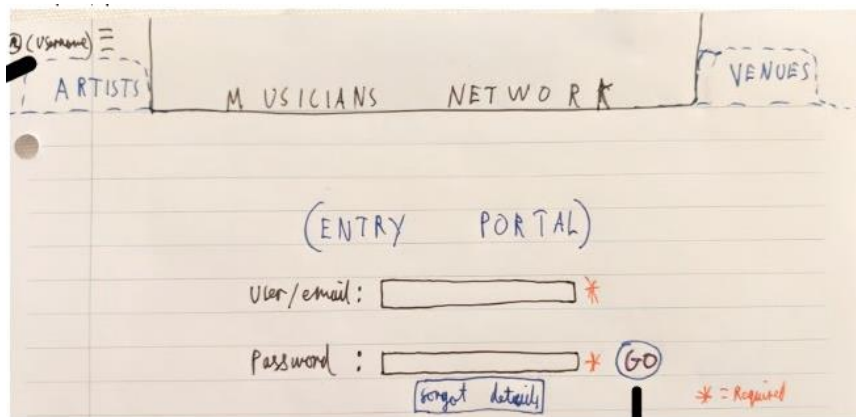 (Username)
ARTISTS
MUSICIANS NETWORK
VENUES
(ENTRY PORTAL)
User/email: *
Password : * GO
forgot details
* = Required